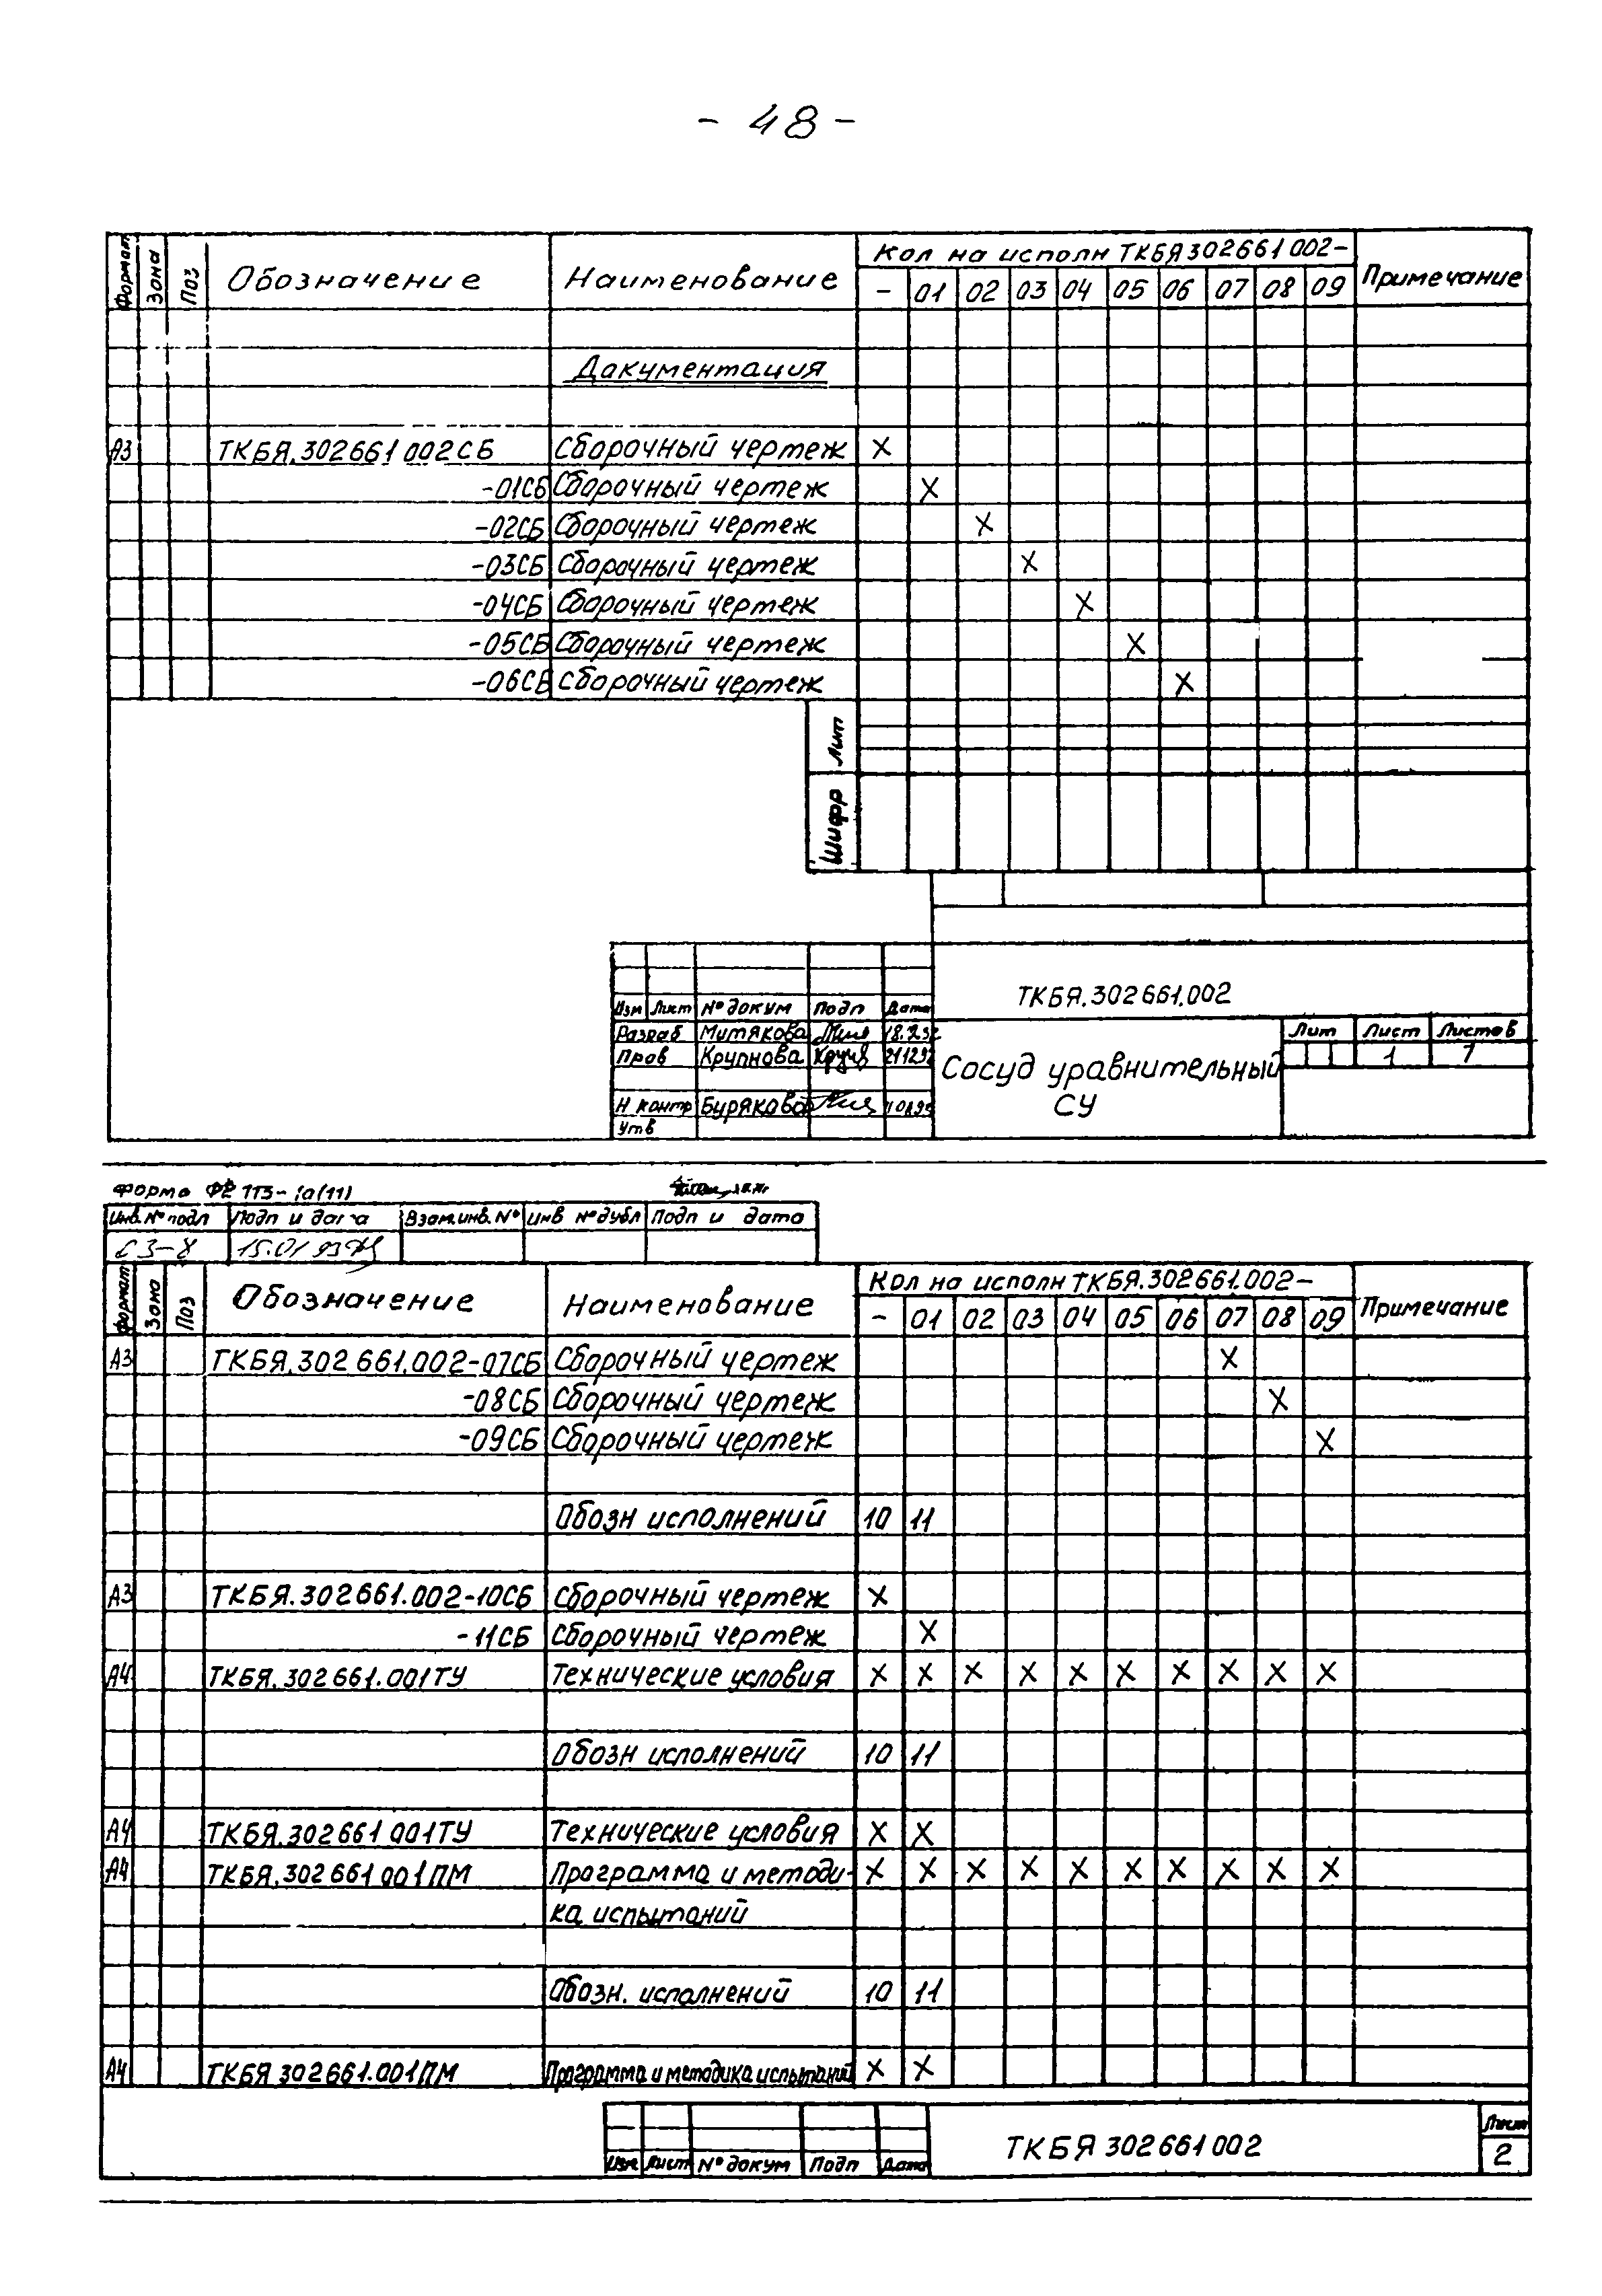 - 48 -
Формат Зона Поз Обозначение Наименование Кол на исполн ТКБЯ302661.002- Примечание
- 01 02 03 04 05 06 07 08 09
Документация
А3 ТКБЯ.302661.002СБ Сборочный чертеж X
-01СБ Сборочный чертеж X
-02СБ Сборочный чертеж X
-03СБ Сборочный чертеж X
-04СБ Сборочный чертеж X
-05СБ Сборочный чертеж X
-06СБ Сборочный чертеж X
Лит
Шифр
ТКБЯ.302661.002
Изм Лист №докум Подп Дата
Разраб Митякова
Пров Крупнова
Н контр Бурякова
Утв
Сосуд уравнительный
СУ
Лит Лист Листов
1 7
Инв.№подл Подп и дата Взам.инв.№ Инв №дубл Подп и дата
15.01
Формат Зона Поз Обозначение Наименование Кол на исполн ТКБЯ.302661.002- Примечание
- 01 02 03 04 05 06 07 08 09
А3 ТКБЯ.302661.002-07СБ Сборочный чертеж X
-08СБ Сборочный чертеж X
-09СБ Сборочный чертеж X
Обозн исполнений 10 11
А3 ТКБЯ.302661.002-10СБ Сборочный чертеж X
-11СБ Сборочный чертеж X
А4 ТКБЯ.302661.001ТУ Технические условия X X X X X X X X X X
Обозн исполнений 10 11
А4 ТКБЯ.302661 001ТУ Технические условия X X
А4 ТКБЯ.302661 001ПМ Программа и методи- X X X X X X X X X X
ка испытаний
Обозн. исполнений 10 11
А4 ТКБЯ 302661.001ПМ Программа и методика испытаний X X
Изм Лист №докум Подп Дата
ТКБЯ 302661 002
Лист
2